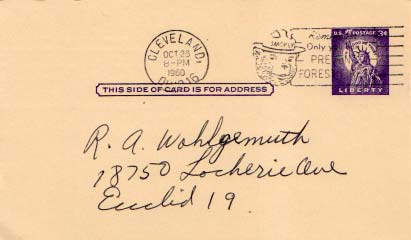 CLEVELAND,
OCT 25
8-PM
1960
OHIO 16
SMOKEY
Only you
PRE
FOREST
U.S. POSTAGE 3¢
LIBERTY
THIS SIDE OF CARD IS FOR ADDRESS
R. A. Wohlgemuth
18750 Locherie Ave
Euclid 19